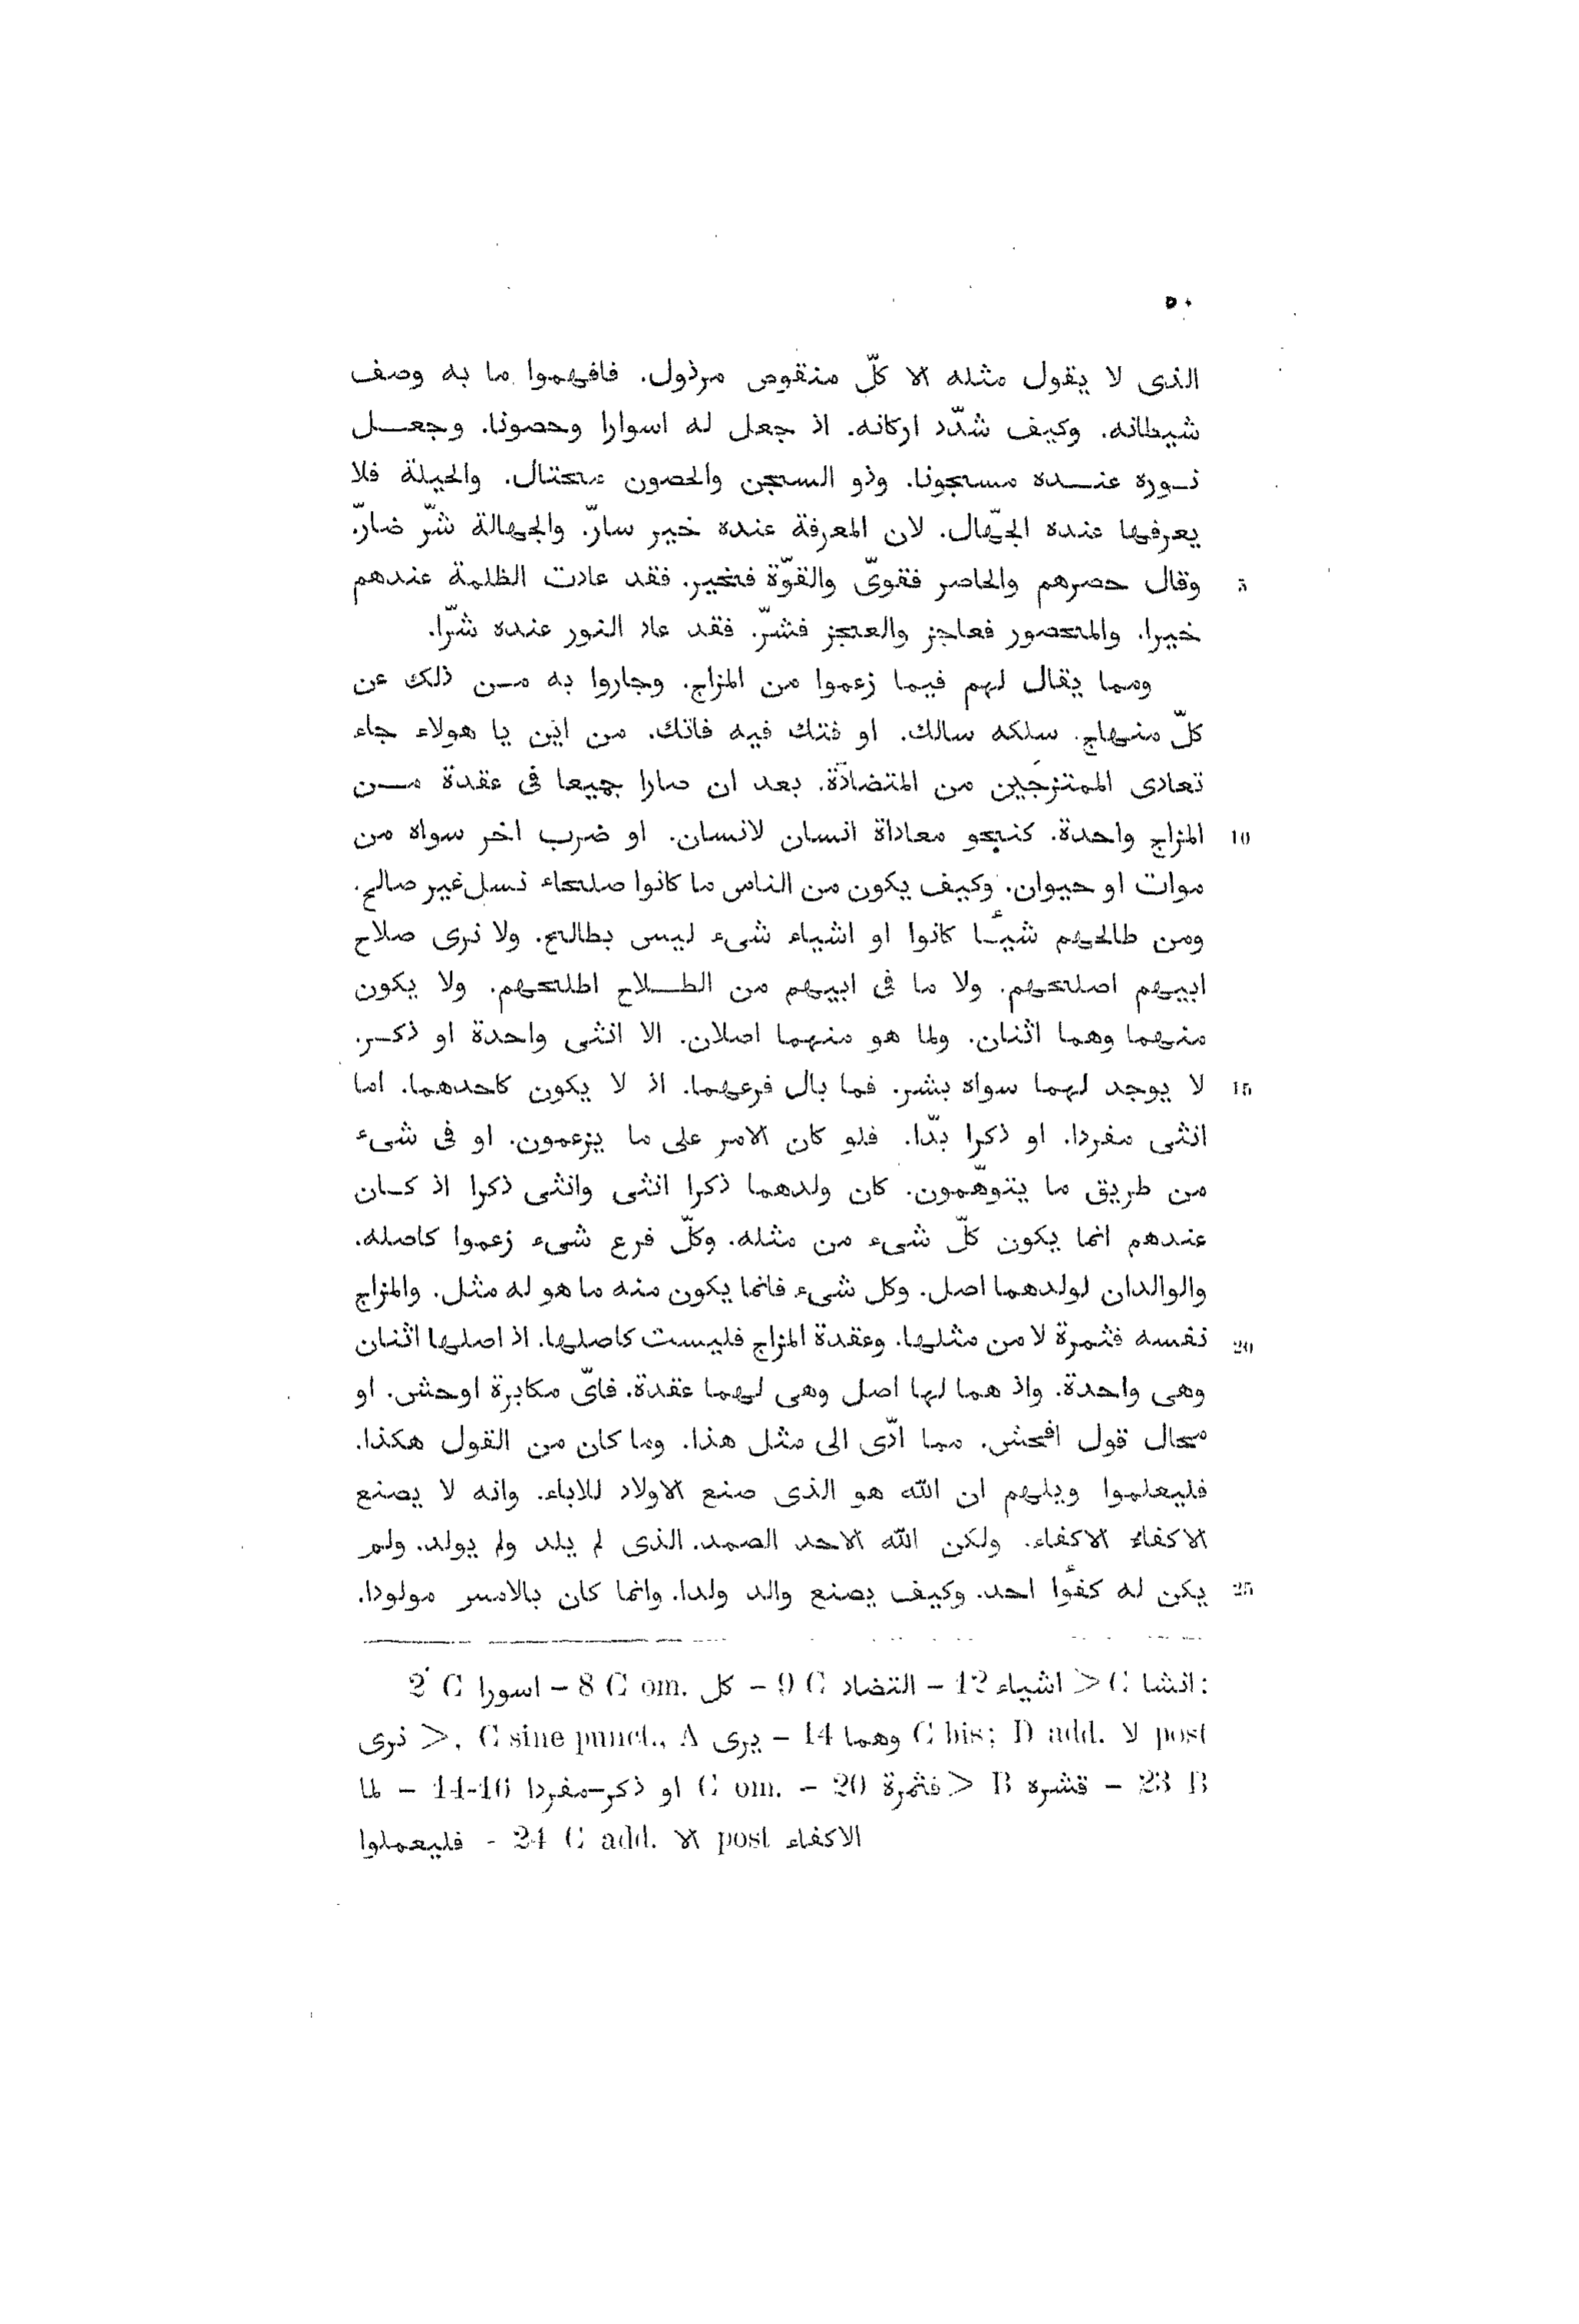 ٥٠
الذى لا يقول مثله الا كلّ منقوص مرذول. فافهموا ما به وصف
شيطانه. وكيف شدّد اركانه. اذ جعل له اسوارا وحصونا. وجعـــل
نـوره عنـــده مسجونا. وذو السجن والحصون محتال. والحيلة فلا
يعرفها عنده الجهّال. لان المعرفة عنده خير سارّ. والجهالة شرّ ضارّ.
5 وقال حصرهم والحاصر فقوىّ والقوّة فخير. فقد عادت الظلمة عندهم
خيرا. والمحصور فعاجز والعجز فشرّ. فقد عاد النور عنده شرّا.
ومما يقال لهم فيما زعموا من المزاج. وجاروا به مـن ذلك عن
كلّ منهاج. سلكه سالك. او فتك فيه فاتك. من اين يا هولاء جاء
تعادى الممتزجَين من المتضادّة. بعد ان صارا جميعا فى عقدة مـــن
10 المزاج واحدة. كنحو معاداة انسان لانسان. او ضرب اخر سواه من
موات او حيوان. وكيف يكون من الناس ما كانوا صلحاء نسل غير صالح.
ومن طالحهم شيـأ كانوا او اشياء شىء ليس بطالح. ولا نرى صلاح
ابيهم اصلحهم. ولا ما فى ابيهم من الطـــلاح اطلحهم. ولا يكون
منهما وهما اثنان. ولما هو منهما اصلان. الا انثى واحدة او ذكـر.
15 لا يوجد لهما سواه بشر. فما بال فرعهما. اذ لا يكون كاحدهما. اما
انثى مفردا. او ذكرا بدّا. فلو كان الامر على ما يزعمون. او فى شىء
من طريق ما يتوهّمون. كان ولدهما ذكرا انثى وانثى ذكرا اذ كـان
عندهم انما يكون كلّ شىء من مثله. وكلّ فرع شىء زعموا كاصله.
والوالدان لولدهما اصل. وكل شىء فانما يكون منه ما هو له مثل. والمزاج
20 نفسه فثمرة لا من مثلها. وعقدة المزاج فليست كاصلها. اذ اصلها اثنان
وهى واحدة. واذ هما لها اصل وهى لهما عقدة. فاىّ مكابرة اوحش. او
محال قول افحش. مما ادّى الى مثل هذا. وما كان من القول هكذا.
فليعلموا ويلهم ان الله هو الذى صنع الاولاد للاباء. وانه لا يصنع
الاكفاء الاكفاء. ولكن الله الاحد الصمد. الذى لم يلد ولم يولد. ولم
25 يكن له كفؤا احد. وكيف يصنع والد ولدا. وانما كان بالامس مولودا.
2 C اسورا – 8 C om. كل – 9 C التضاد – 12 اشياء > C انشا:
نرى >, C sine punct., A يرى – 14 وهما C bis; D add. لا post
لما – 14-16 او ذكر–مفردا C om. – 20 فثمرة > B قشره – 23 B
فليعملوا - 24 C add. الا post الاكفاء